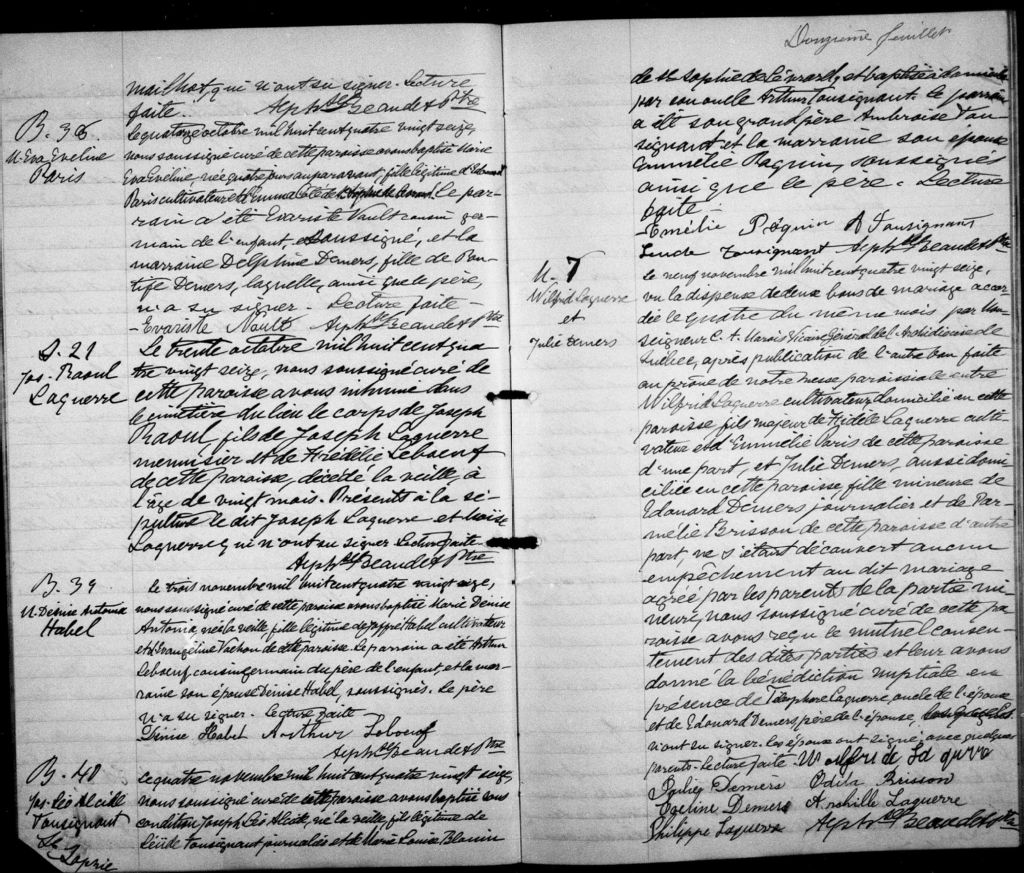 mailhot, qui n'ont su signer. Lecture
faite.
Alph. Beaudet Ptre
B. 38
M. Eva Eveline
Paris
Le quatorze octobre mil huit cent quatre vingt seize,
nous soussigné curé de cette paroisse avons baptisé Marie
Eva Eveline, née quatre jours auparavant, fille légitime d'Edouard
Paris cultivateur et d'Emma le par-
rain a été Evariste Nault cousin ger-
main de l'enfant, soussigné, et la
marraine Delphine Demers, fille de Pon-
tife Demers, laquelle, ainsi que le père,
n'a su signer. Lecture faite -
Evariste Nault Alph. Beaudet Ptre
S. 21
Jos. Raoul
Laquerre
Le trente octobre mil huit cent qua
tre vingt seize, nous soussigné curé de
cette paroisse avons inhumé dans
le cimetière du lieu le corps de Joseph
Raoul, fils de Joseph Laquerre
menuisier et de Leboeuf
de cette paroisse, décédé la veille, à
l'âge de vingt mois. Présents à la sé-
pulture le dit Joseph Laquerre et Moïse
Laquerre qui n'ont su signer. Lecture faite.
Alph. Beaudet Ptre
B. 39
M. Denise Antonia
Habel
Le trois novembre mil huit cent quatre vingt seize,
nous soussigné curé de cette paroisse avons baptisé Marie Denise
Antonia, née la veille, fille légitime de Habel cultivateur
et d'Evangéline Vachon de cette paroisse. Le parrain a été Arthur
Leboeuf, cousin germain du père de l'enfant et la mar-
raine son épouse Denise Habel, soussignés. Le père
n'a su signer. Lecture faite
Denise Habel Arthur Leboeuf
Alph. Beaudet Ptre
B. 40
Jos. Léo Alcide
Tousignant
Le quatre novembre mil huit cent quatre vingt seize,
nous soussigné curé de cette paroisse avons baptisé sous
condition Joseph Léo Alcide, né la veille, fils légitime de
Tousignant journalier et de Marie Louise
Douzième feuillet
de St Sophie de Lévrard, et baptisé à domicile
par son oncle Arthur Tousignant. Le parrain
a été son grand père Ambroise Tou
signant et la marraine son épouse
Emmélie Paquin, soussignés
ainsi que le père. Lecture
faite.
Emélie Paquin A Tousignant
Tousignant Alph. Beaudet Ptre
M. 7
Wilfrid Laquerre
et
Julie Demers
Le neuf novembre mil huit cent quatre vingt seize,
vu la dispense de deux bans de mariage accor
dée le quatre du même mois par Mon
seigneur C. A. Marois Vicaire Général de l'Archidiocèse de
Québec, après publication de l'autre ban faite
au prône de notre messe paroissiale entre
Wilfrid Laquerre cultivateur domicilié en cette
paroisse fils majeur de Fidèle Laquerre culti
vateur et d'Emmélie Paris de cette paroisse
d'une part, et Julie Demers, aussi domi
ciliée en cette paroisse, fille mineure de
Edouard Demers journalier et de Par
mélie Brisson de cette paroisse d'autre
part, ne s'étant découvert aucun
empêchement au dit mariage
agréé par les parents de la partie mi
neure, nous soussigné curé de cette pa
roisse avons reçu le mutuel consen-
tement des dites parties et leur avons
donné la bénédiction nuptiale en
présence de Télesphore Laquerre, oncle de l'époux
et de Edouard Demers père de l'épouse,
n'ont su signer. Les époux ont signé avec quelques
parents. Lecture faite. Wolfride Laquerre
Julie Demers Odila Brisson
Eveline Demers Archille Laquerre
Philippe Laquerre Alph. Beaudet Ptre